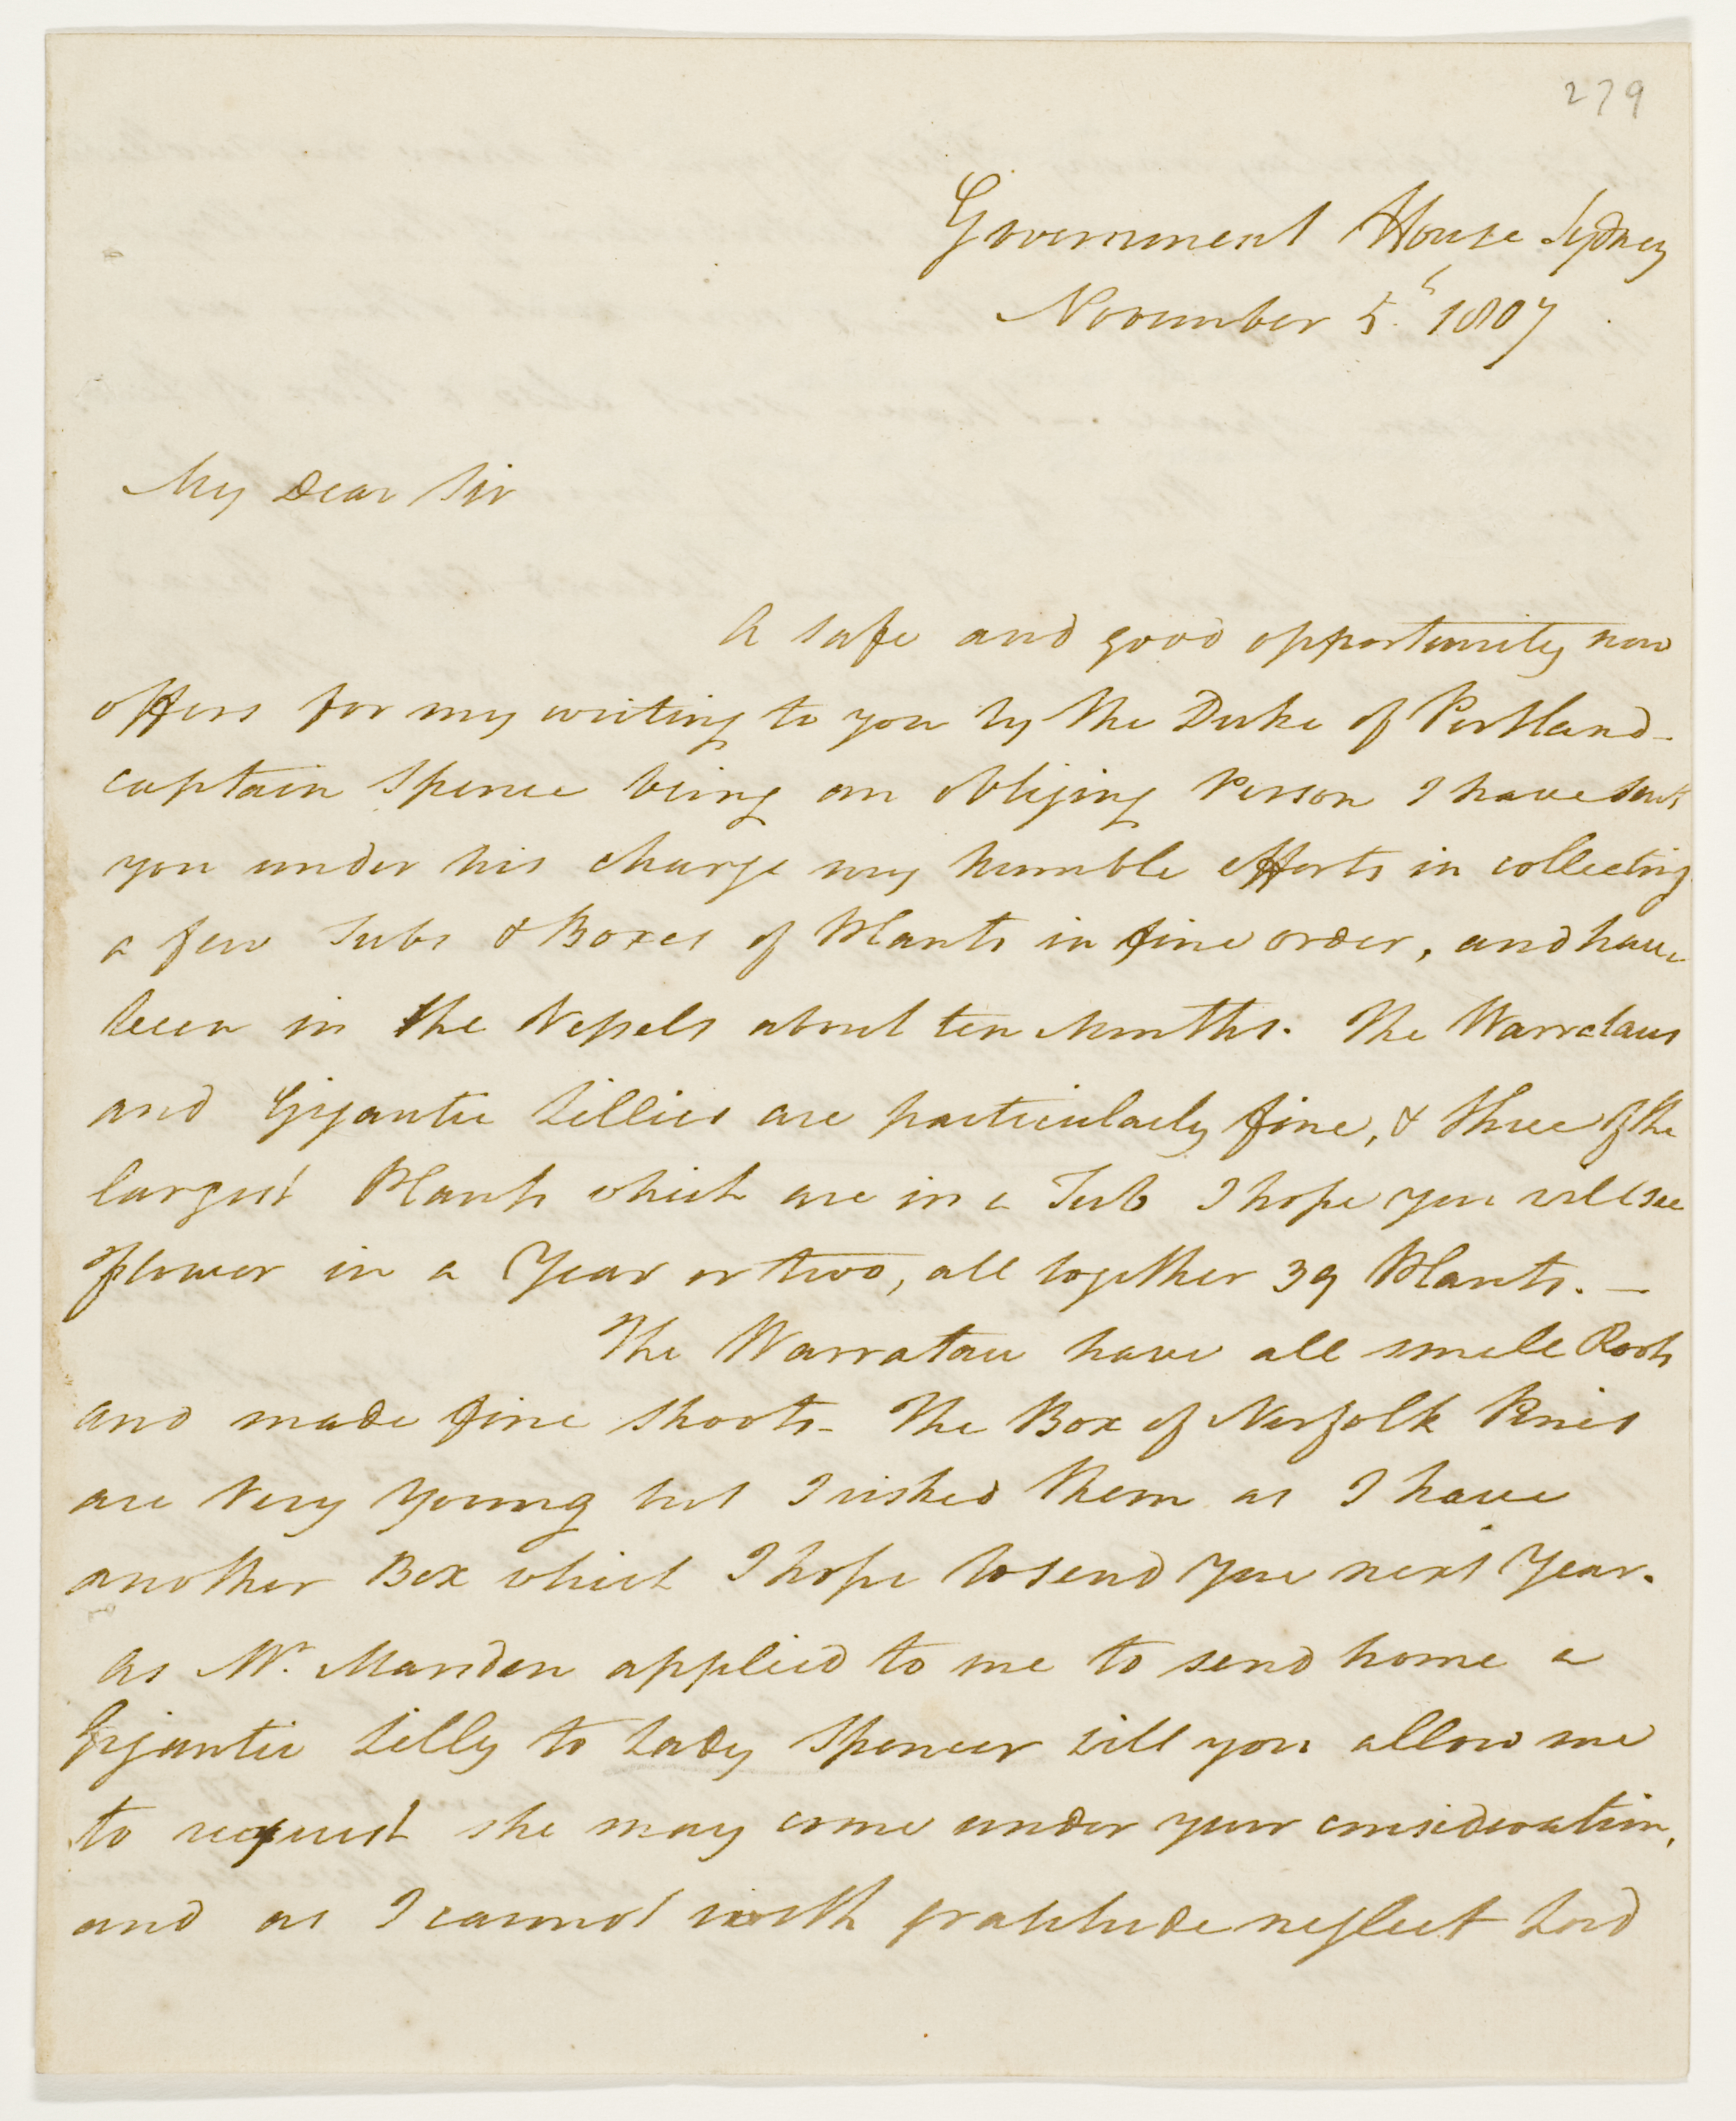 279
Government House Sydney
November 5th 1807
My Dear Sir
A safe and good opportunity now
offers for my writing to you by the Duke of Portland -
captain Spence being an obliging Person I have sent
you under his charge my humble efforts in collecting
a few Tubs & Boxes of Plants in fine order, and have
been in the Vessels about ten Months. The Warrataus
and Gigantic Lillies are particularly fine, & three of the
largest Plants which are in a Tub I hope you will see
flower in a Year or two, all together 39 Plants. —
The Warratau have all small Roots
and made fine shoots - The Box of Norfolk Pines
are Very Young but I risked them as I have
another Box which I hope to send you next Year.
As Mr. Marsden applied to me to send home a
Gigantic Lilly to Lady Spencer will you allow me
to request she may come under your consideration,
and as I cannot with gratitude neglect Lord